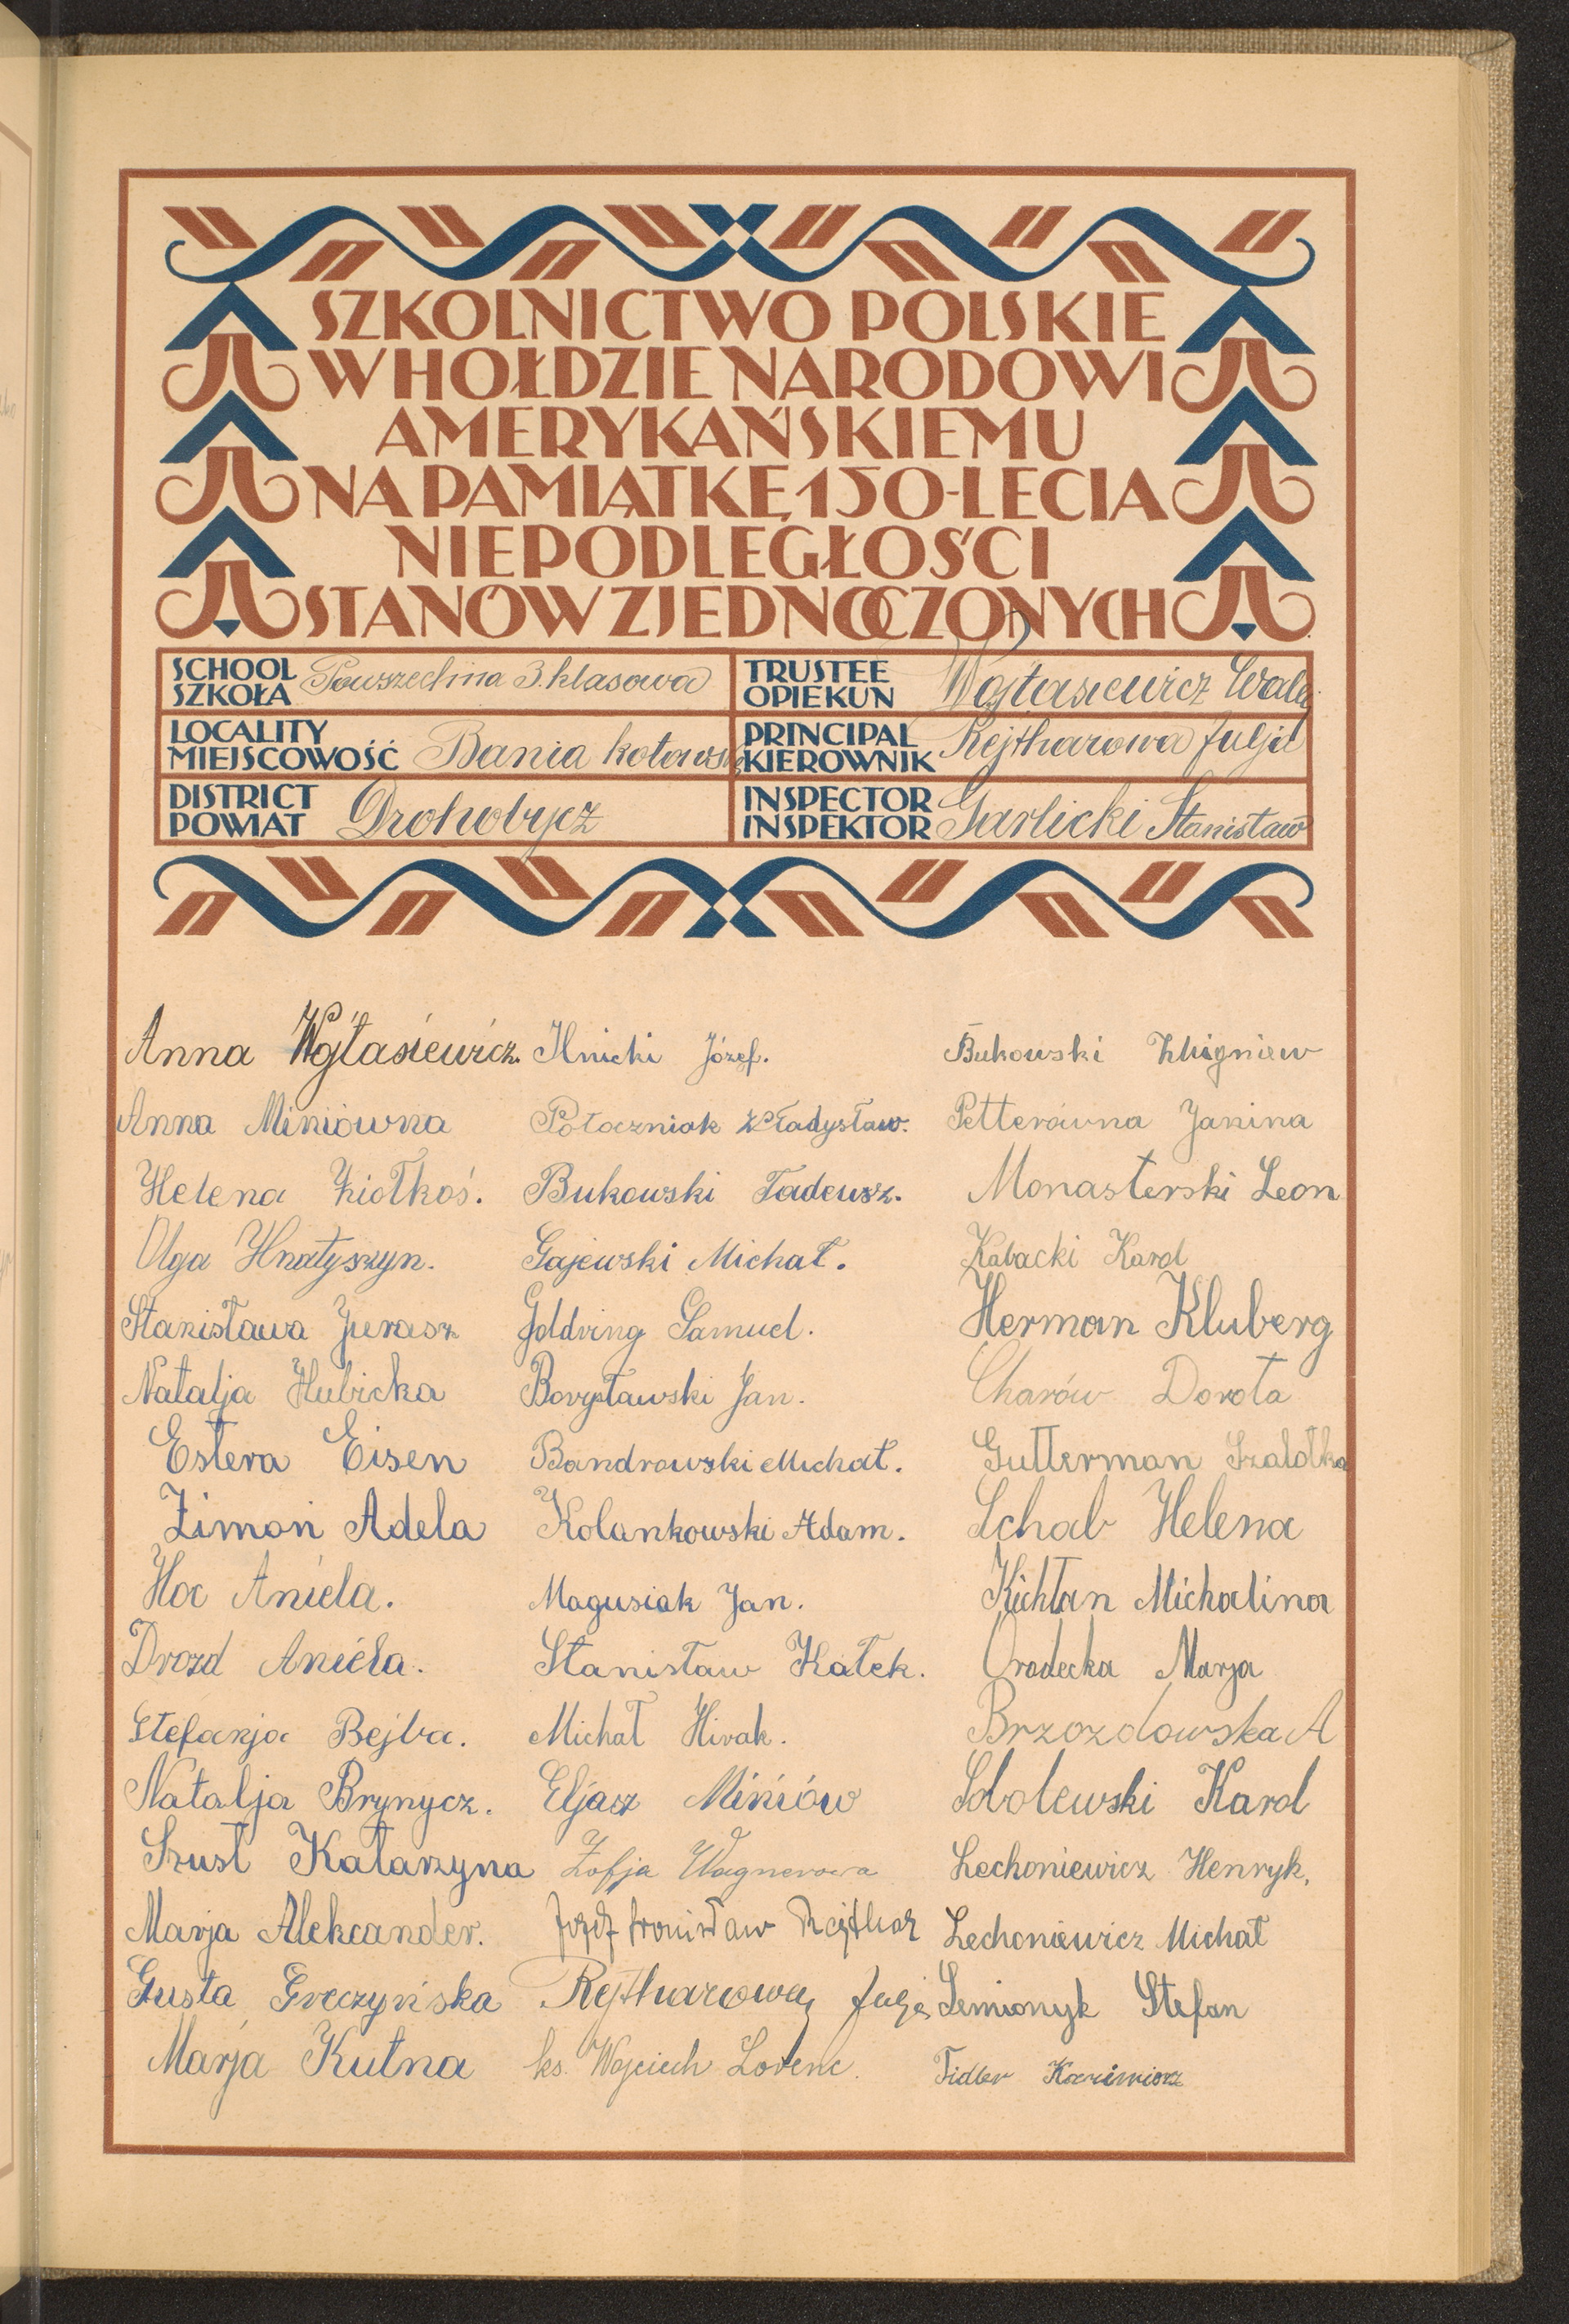 SZKOLNICTWO POLSKIE
W HOŁDZIE NARODOWI
AMERYKAŃSKIEMU
NA PAMIĄTKĘ 150-LECIA
NIEPODLEGŁOŚCI
STANÓW ZJEDNOCZONYCH
SCHOOL
SZKOŁA
Powszechna 3. klasowa
TRUSTEE
OPIEKUN
Wojtasiewicz Walej
LOCALITY
MIEJSCOWOŚĆ
Bania kotowska
PRINCIPAL
KIEROWNIK
Rejtharowa Julja
DISTRICT
POWIAT
Drohobycz
INSPECTOR
INSPEKTOR
Garlicki Stanisław
Anna Wojtasiewicz.
Anna Miniówna
Helena Ziołkoś.
Olga Hnatyszyn.
Stanisława Jurasz
Natalja Hubicka
Estera Eisen
Zimon Adela
Hoc Aniela.
Drozd Aniela.
Stefanja Bejba.
Natalja Brynycz.
Szust Katarzyna
Marja Alekcander.
Gusta
Marja Kutna
Ilnicki Józef.
Połoczniak Władysław.
Bukowski Tadeusz.
Gajewski Michał.
Goldring Samuel.
Borysławski Jan.
Bandrowski Michał.
Kolankowski Adam.
Magusiak Jan.
Stanisław Kałek.
Michał Hirak.
Eljasz Miniów
Zofja Wagnerowa
Józef Bronisław Rejthar
Rejtharowa Julja
ks. Wojciech Lorenc.
Bukowski Zbigniew
Petterówna Janina
Monasterski Leon
Kabacki Karol
Herman Kluberg
Charów Dorota
Gutterman
Schab Helena
Kichtan Michalina
Gradecka Marja
Brzozdowska A
Sobolewski Karol
Lechoniewicz Henryk.
Lechoniewicz Michał
Semionyk Stefan
Fidler Kazimierz